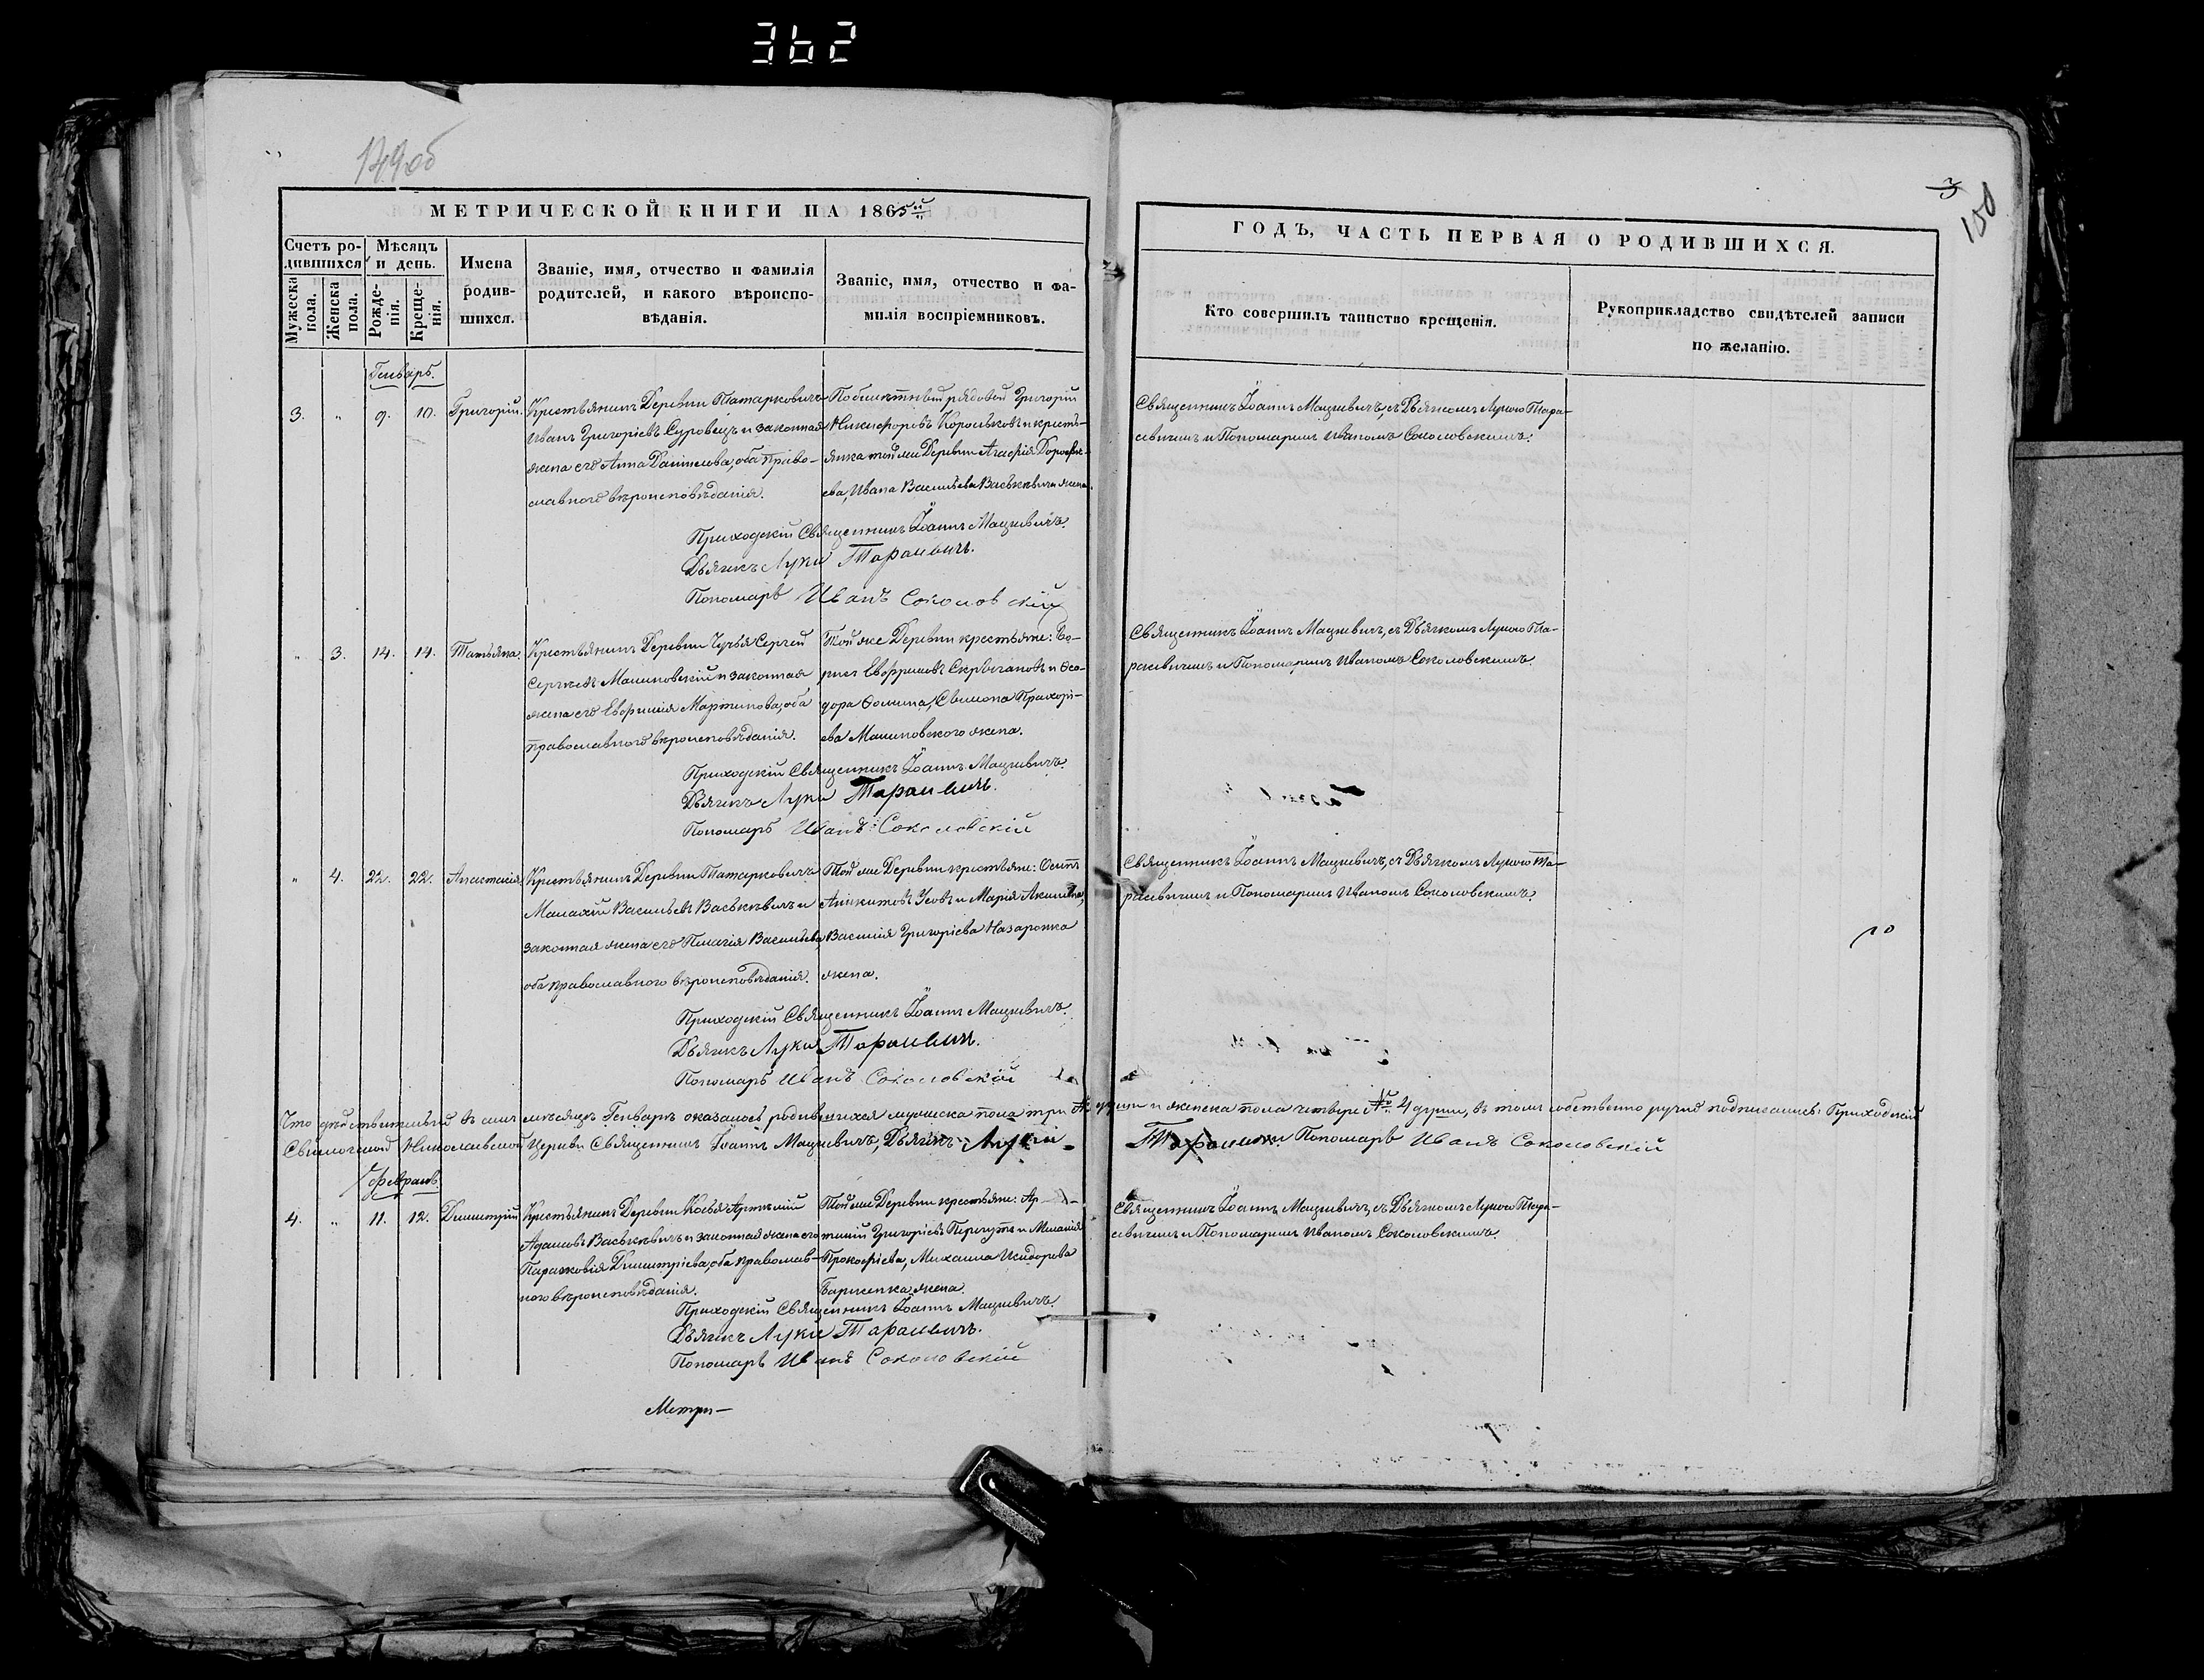 362
149об
3
100
МЕТРИЧЕСКОЙ КНИГИ НА 1865й
ГОДЪ, ЧАСТЬ ПЕРВАЯ О РОДИВШИХСЯ.
Счетъ ро-
дившихся
Мужеска
пола.
Женска
пола.
Мѣсяцъ
и день.
Рожде-
нія.
Креще-
нія.
Имена
родив-
шихся.
Званіе, имя, отчество и фамилія
родителей, и какого вѣроиспо-
вѣданія.
Званіе, имя, отчество и фа-
милія воспріемниковъ.
Кто совершилъ таинство крещенія.
Рукоприкладство свидѣтелей записи
по желанію.
Генварь.
3. " 9. 10. Григорій.
Крестьянинъ Деревни Татарковичъ
Иванъ Григорієвъ Суровецъ и законная
жена его Анна Даніилова, оба Право-
славного вѣроисповѣданія.
рядовой Григорій
Никифоровъ и кресть-
янка той же Деревни Агафія Дорофѣ-
ева, Ивана Васильева Васькевича жена.
Священникъ Іоаннъ Мацкевичъ, съ Дьячкомъ Лукою Тара-
севичемъ и Пономаремъ Иваномъ Соколовскимъ.
Приходскій Священникъ Іоаннъ Мацкевичъ.
Дьячекъ Лука Тарасевичъ.
Пономарь Иванъ Соколовскій
" 3. 14. 14. Татьяна.
Крестьянинъ Деревни Сергѣй
Сергѣевъ Малиновскій и законная
жена его Евфимія Мартинова, оба
православного вѣроисповѣданія.
Той же Деревни крестьяне: Бо-
рисъ и Ѳео-
дора Ѳомина, Симона
ева Малиновского жена.
Священникъ Іоаннъ Мацкевичъ, съ Дьячкомъ Лукою Та-
расевичемъ и Пономаремъ Иваномъ Соколовскимъ.
Приходскій Священникъ Іоаннъ Мацкевичъ.
Дьячекъ Лука Тарасевичъ.
Пономарь Иванъ Соколовскій
" 4. 22. 22. Анастасія
Крестьянинъ Деревни Татарковичъ
Малахій Васильевъ Васькевичъ и
законная жена его Пелагія Васильева
оба православного вѣроисповѣданія.
Той же Деревни крестьяне: Осипъ
Аникитовъ Усовъ и Марія Акимова,
Василія Григорієва Назаронка
жена.
Священникъ Іоаннъ Мацкевичъ, съ Дьячкомъ Лукою Та-
расевичемъ и Пономаремъ Иваномъ Соколовскимъ.
Приходскій Священникъ Іоаннъ Мацкевичъ.
Дьячекъ Лука Тарасевичъ.
Пономарь Иванъ Соколовскій
Что дѣйствительно въ семъ мѣсяцѣ Генварѣ оказалось родившихся мужеска пола три души и женска пола четыре № 4 души, въ томъ собственно ручно подписались: Приходскій
Николаевской Церкви Священникъ Іоаннъ Мацкевичъ, Дьячекъ Лука Тарасевичъ Пономарь Иванъ Соколовскій
Февраль.
4. " 11. 12. Димитрій
Крестьянинъ Деревни Артемій
Адамовъ Васькевичъ и законная жена его
Парасковія Димитріева, оба православ-
ного вѣроисповѣданія.
Той же Деревни крестьяне: Ар-
темій Григорієвъ и Меланія
Прокофієва, Михаила Исидорова
жена.
Священникъ Іоаннъ Мацкевичъ, съ Дьячкомъ Лукою Тара-
севичемъ и Пономаремъ Иваномъ Соколовскимъ.
Приходскій Священникъ Іоаннъ Мацкевичъ.
Дьячекъ Лука Тарасевичъ.
Пономарь Иванъ Соколовскій
Метри-